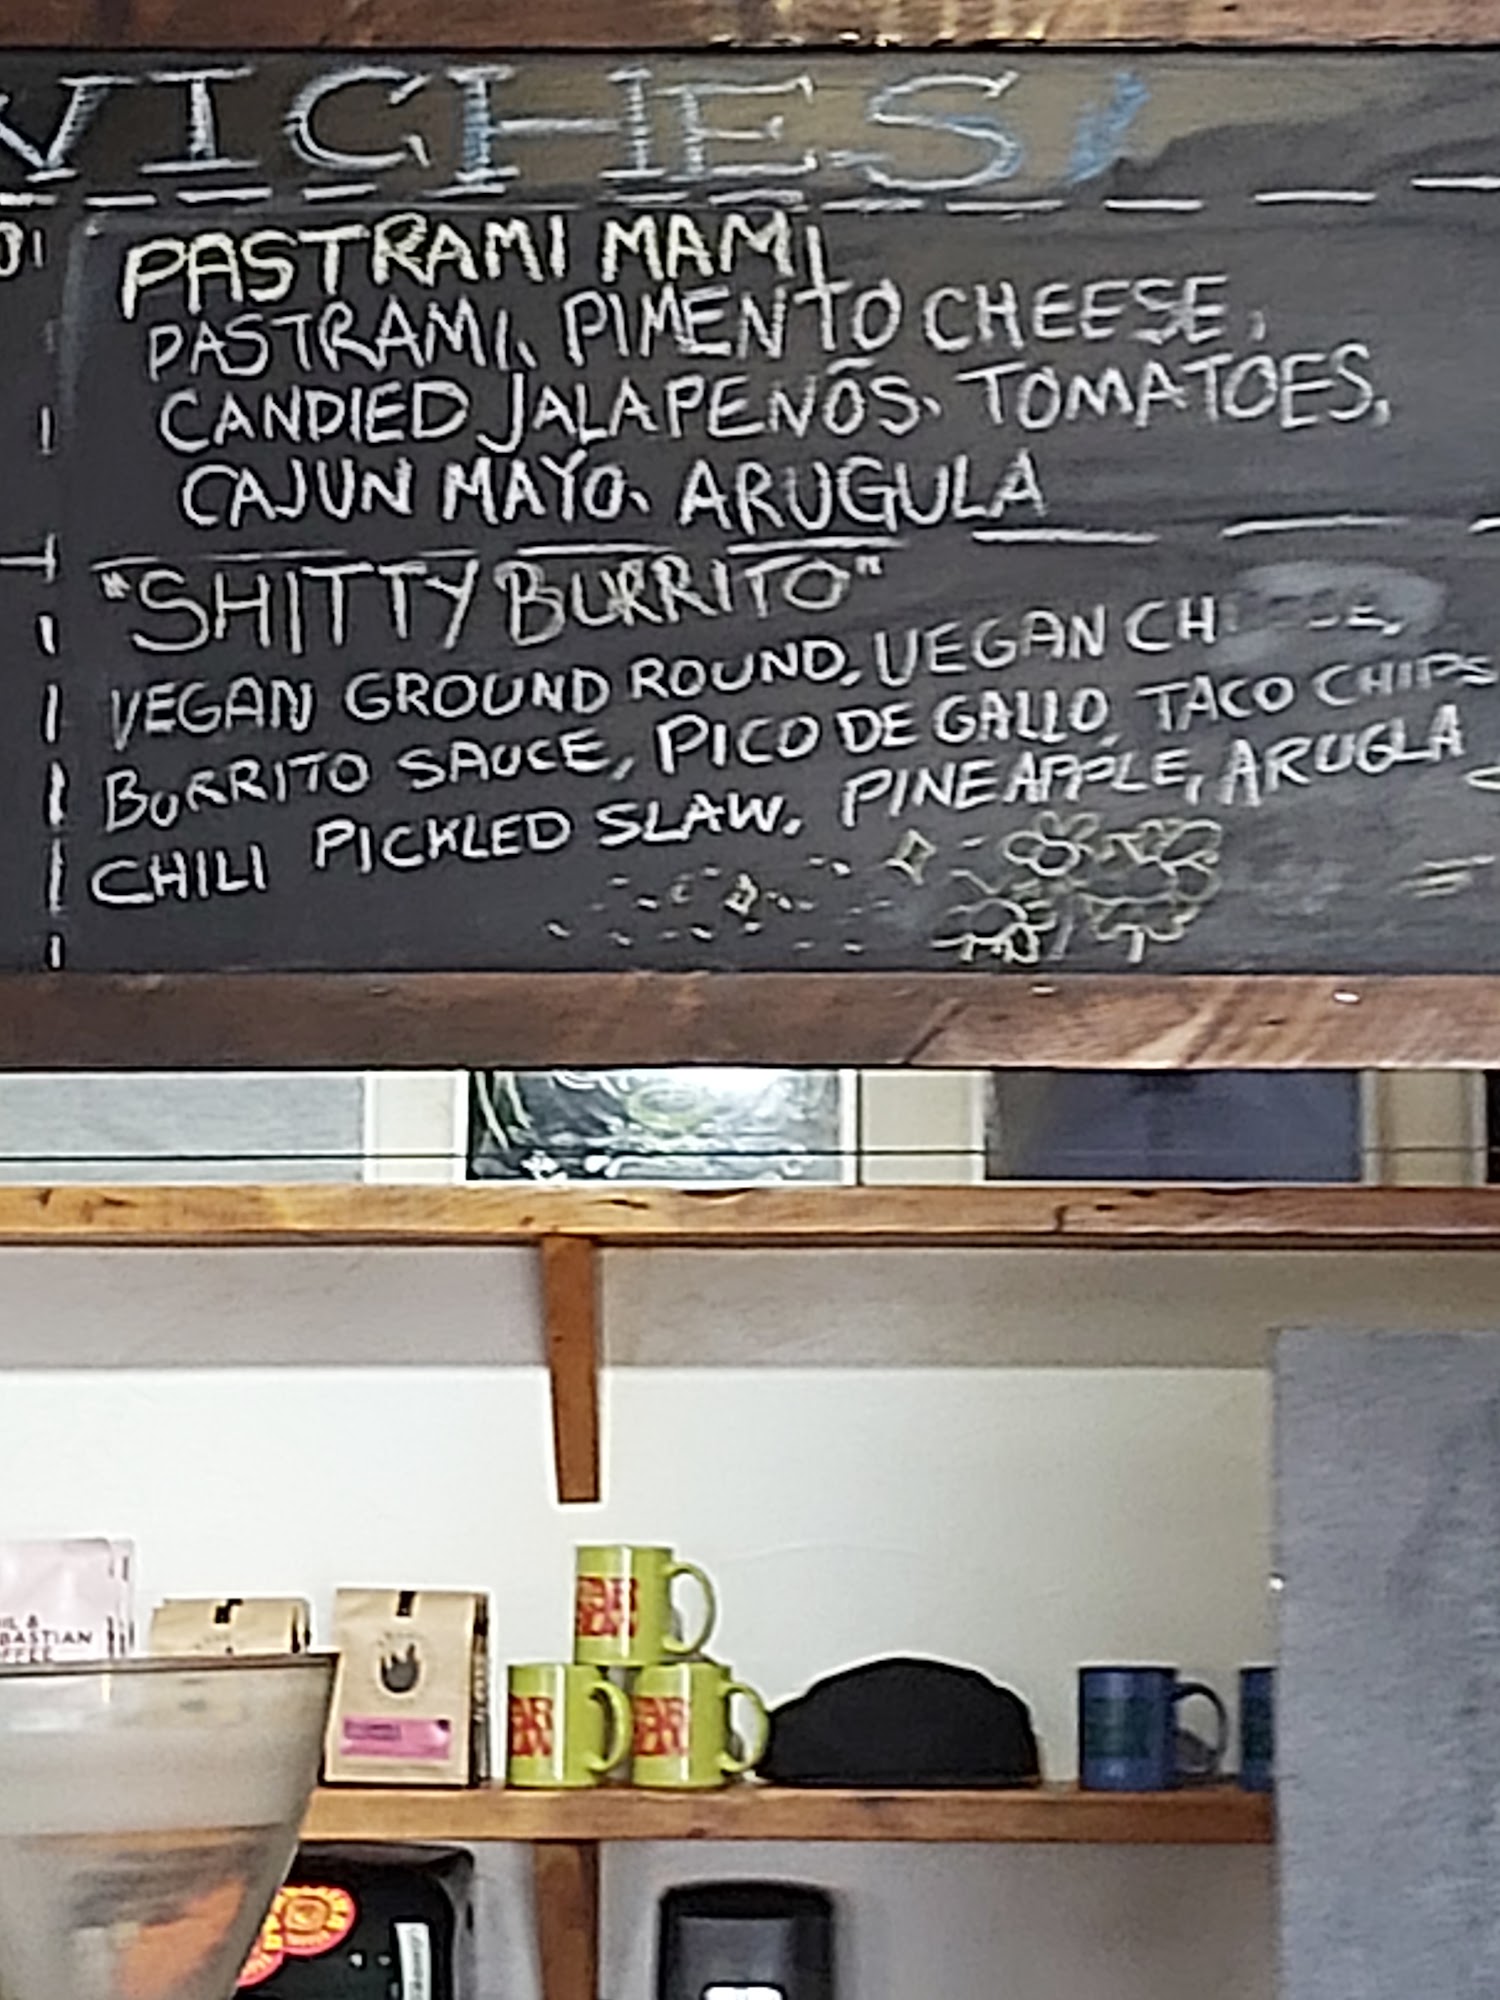 WICHES
PASTRAMI MAMI
PASTRAMI, PIMENTO CHEESE,
CANDIED JALAPEÑOS, TOMATOES,
CAJUN MAYO, ARUGULA
"SHITTY BURRITO"
VEGAN GROUND ROUND, VEGAN CHEESE,
BURRITO SAUCE, PICO DE GALLO, TACO CHIPS
CHILI PICKLED SLAW, PINEAPPLE, ARUGLA